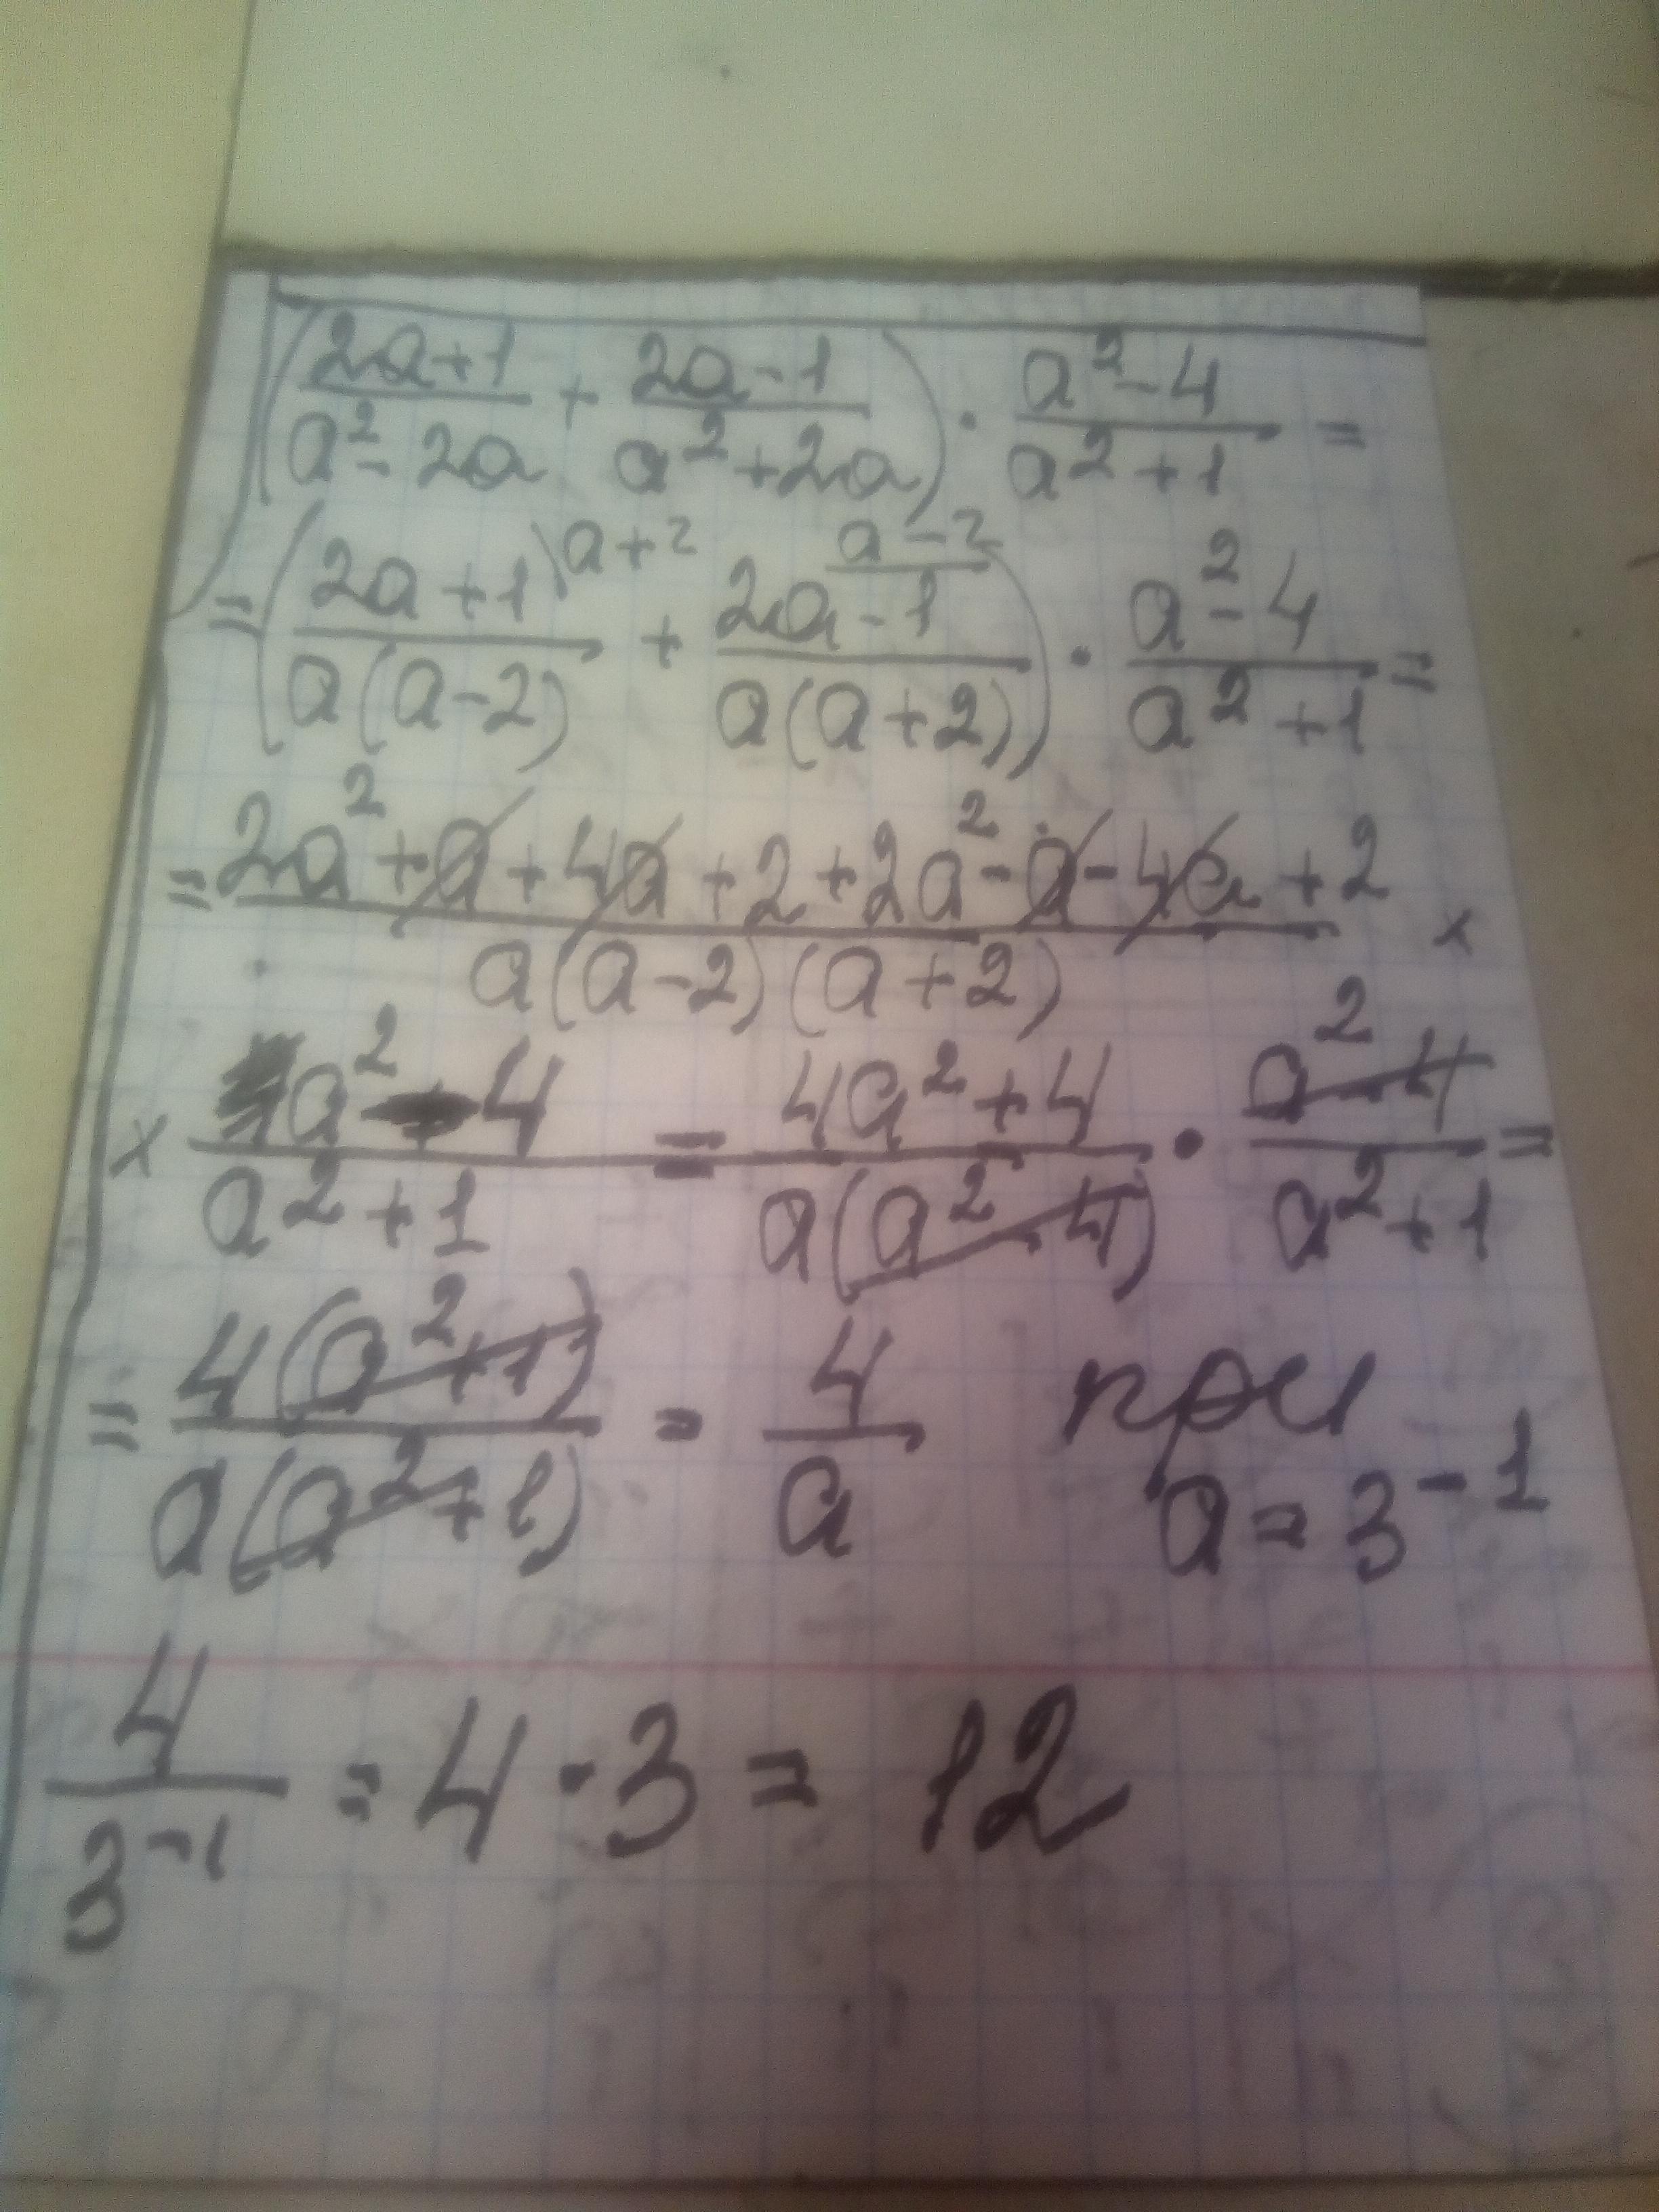 (2a+1/a²-2a + 2a-1/a²+2a) · a²-4/a²+1 =
= (2a+1\a+2/a(a-2) + 2a-1\a-2/a(a+2)) · a²-4/a²+1 =
= 2a²+a+4a+2+2a²-a-4a+2/a(a-2)(a+2) ×
× a²-4/a²+1 = 4a²+4/a(a²-4) · a²-4/a²+1 =
= 4(a²+1)/a(a²+1) = 4/a при
a = 3⁻¹
4/3⁻¹ = 4 · 3 = 12